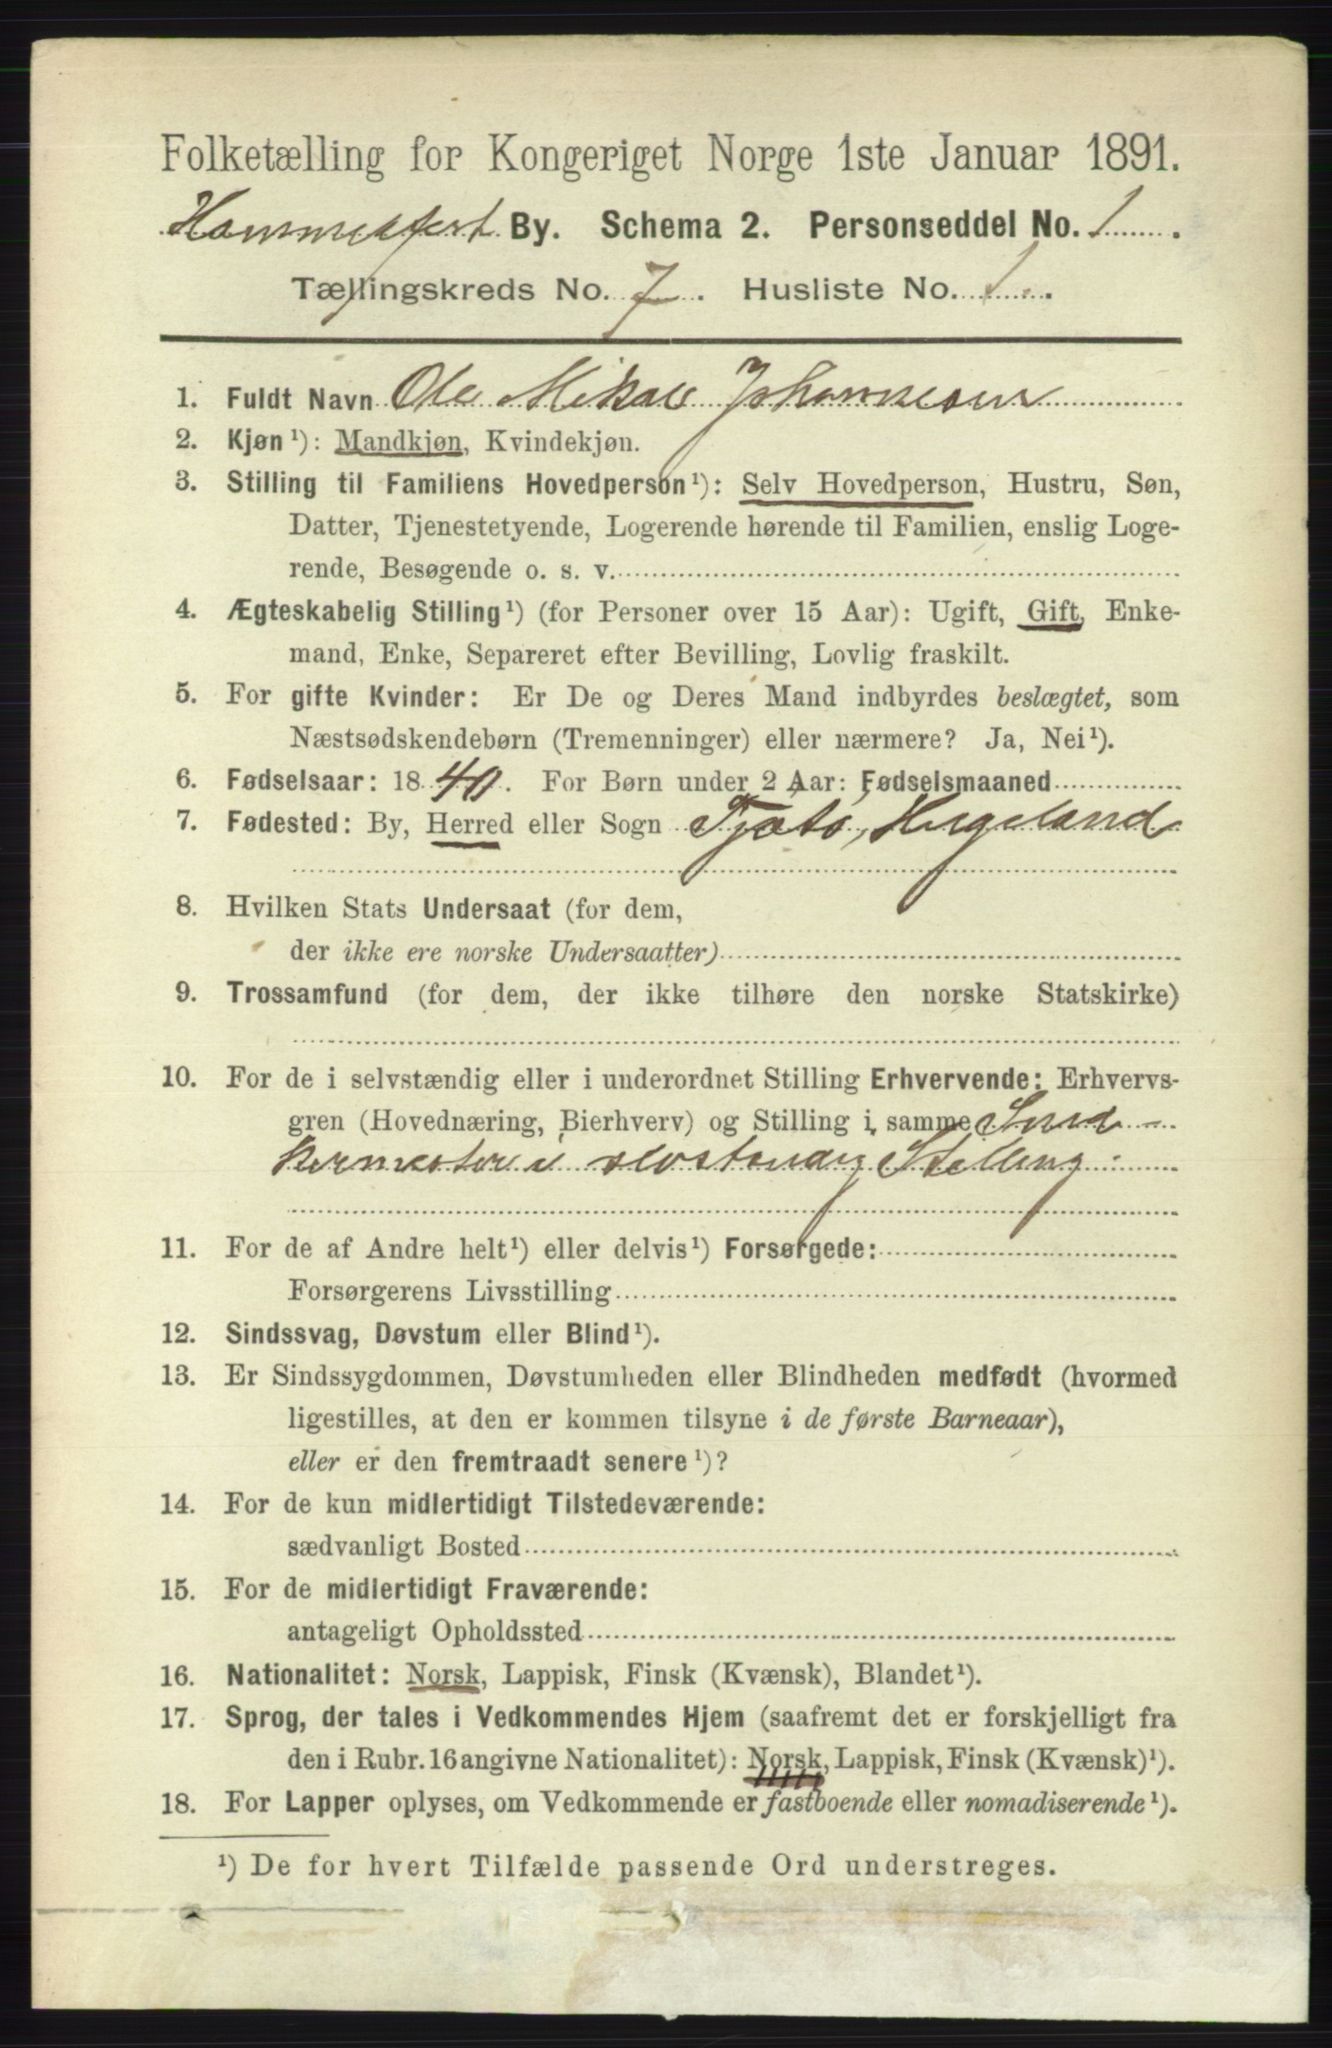 Folketælling for Kongeriget Norge 1ste Januar 1891.
Hammerfest By. Schema 2. Personseddel No. 1.
Tællingskreds No. 7. Husliste No. 1.
1. Fuldt Navn Ole Mikal Johannesen
2. Kjøn¹): Mandkjøn, Kvindekjøn.
3. Stilling til Familiens Hovedperson¹): Selv Hovedperson, Hustru, Søn,
Datter, Tjenestetyende, Logerende hørende til Familien, enslig Loge-
rende, Besøgende o. s. v.
4. Ægteskabelig Stilling¹) (for Personer over 15 Aar): Ugift, Gift, Enke-
mand, Enke, Separeret efter Bevilling, Lovlig fraskilt.
5. For gifte Kvinder: Er De og Deres Mand indbyrdes beslægtet, som
Næstsødskendebørn (Tremenninger) eller nærmere? Ja, Nei¹).
6. Fødselsaar: 1840. For Børn under 2 Aar: Fødselsmaaned
7. Fødested: By, Herred eller Sogn Tjøtø, Helgeland
8. Hvilken Stats Undersaat (for dem,
der ikke ere norske Undersaatter)
9. Trossamfund (for dem, der ikke tilhøre den norske Statskirke)
10. For de i selvstændig eller i underordnet Stilling Erhvervende: Erhvervs-
gren (Hovednæring, Bierhverv) og Stilling i samme Sned-
kermester i slvstendig Stelling
11. For de af Andre helt¹) eller delvis¹) Forsørgede:
Forsørgerens Livsstilling
12. Sindssvag, Døvstum eller Blind¹).
13. Er Sindssygdommen, Døvstumheden eller Blindheden medfødt (hvormed
ligestilles, at den er kommen tilsyne i de første Barneaar),
eller er den fremtraadt senere¹)?
14. For de kun midlertidigt Tilstedeværende:
sædvanligt Bosted
15. For de midlertidigt Fraværende:
antageligt Opholdssted
16. Nationalitet: Norsk, Lappisk, Finsk (Kvænsk), Blandet¹).
17. Sprog, der tales i Vedkommendes Hjem (saafremt det er forskjelligt fra
den i Rubr. 16 angivne Nationalitet): Norsk, Lappisk, Finsk (Kvænsk)¹).
18. For Lapper oplyses, om Vedkommende er fastboende eller nomadiserende¹).
¹) De for hvert Tilfælde passende Ord understreges.